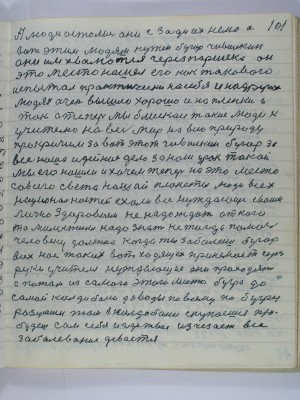 101
А люди стоят они с задних не на а
вот этим людям нужен бугор чивилкин
они им хвалются через Паршека он
это место нашел его как такового
испытал практически на себя и на других
людях очен вышло хорошо и на пленки
так а теперь мы близкая такие люди к
учителю на вес мир на всю природу
прокричим за вот этот чивилкин бугор за
все наше идейное дело за нам урок такой
мы его нашли и хочем теперь на это место
со всего света нашей планете люди всех
национальностей ехали все нуждающие своим
лично здоровьям не надеждою от кого
то милости надо знат не тигда помоч
человеку должна когда ты заболееш бугор
всех нас таких вот ходящих принимает через
руки учителя нуждающие они приходят
с питам из самого этого места бугра до
самой колдобани доводы по всему по бугру
разутыи там в колдобани скупаешся про-
будеш сам себя и исчезает все
заболевания девается